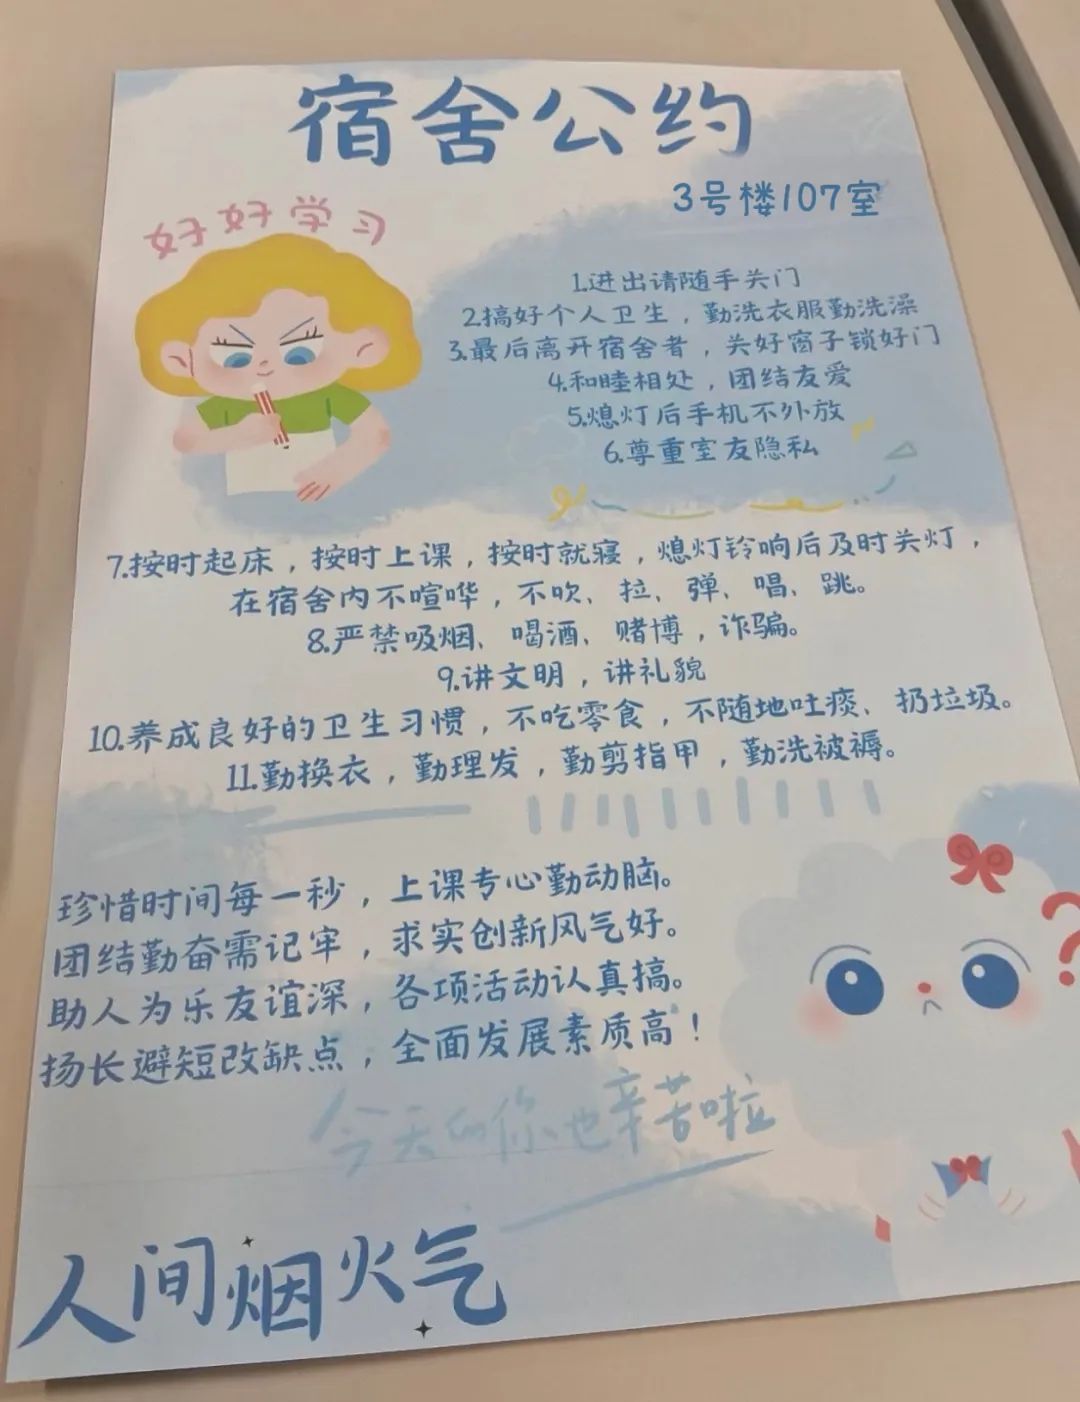 宿舍公约
3号楼107室
好好学习
1.进出请随手关门
2.搞好个人卫生，勤洗衣服勤洗澡
3.最后离开宿舍者，关好窗子锁好门
4.和睦相处，团结友爱
5.熄灯后手机不外放
6.尊重室友隐私
7.按时起床，按时上课，按时就寝，熄灯铃响后及时关灯，
在宿舍内不喧哗，不吹、拉、弹、唱、跳。
8.严禁吸烟、喝酒、赌博，诈骗。
9.讲文明，讲礼貌
10.养成良好的卫生习惯，不吃零食，不随地吐痰、扔垃圾。
11.勤换衣，勤理发，勤剪指甲，勤洗被褥。
珍惜时间每一秒，上课专心勤动脑。
团结勤奋需记牢，求实创新风气好。
助人为乐友谊深，各项活动认真搞。
扬长避短改缺点，全面发展素质高！
今天的你也辛苦啦
人间烟火气